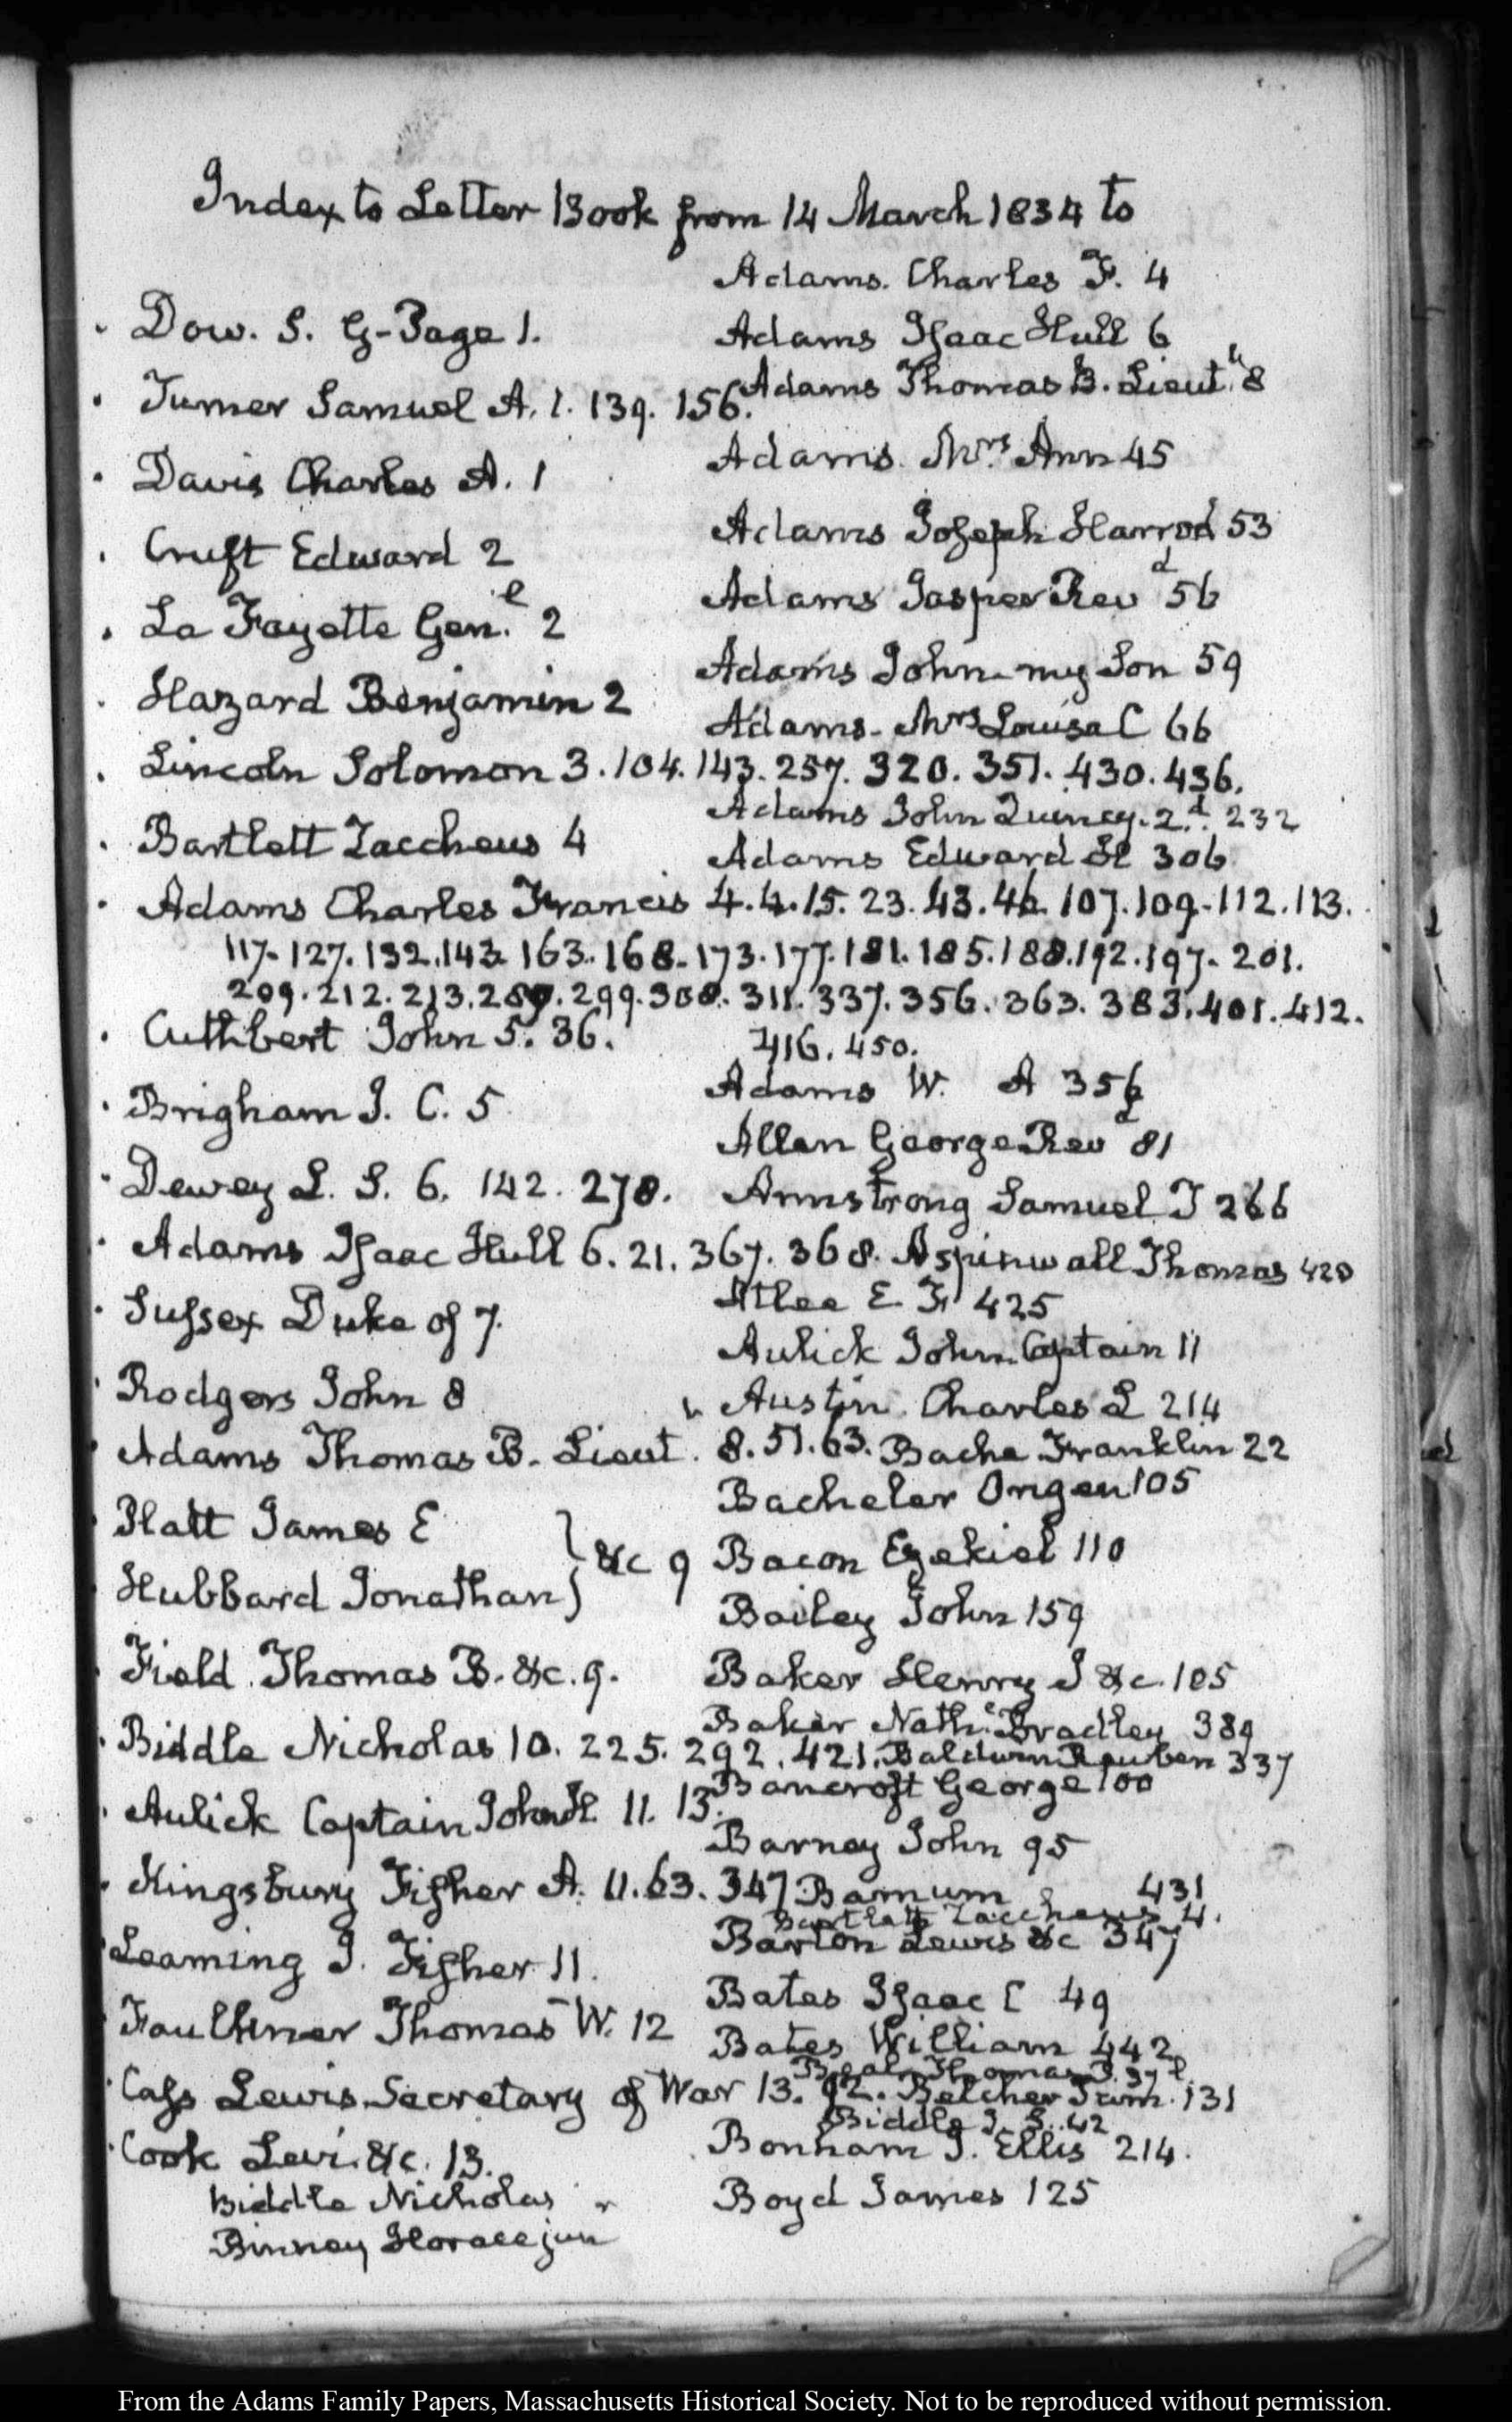 Index to Letter Book from 14 March 1834 to
Dow. S. G-Page 1.
Turner Samuel A. 1. 139. 156.
Davis Charles A. 1
Cruft Edward 2
La Fayette Gen.l 2
Hazard Benjamin 2
Lincoln Solomon 3. 104. 143. 257. 320. 351. 430. 436.
Bartlett Zaccheus 4
Adams Charles Francis 4. 4. 15. 23. 43. 46. 107. 109. 112. 113.
117. 127. 132. 143. 163. 168. 173. 177. 181. 185. 188. 192. 197. 201.
209. 212. 213. 299. 308. 311. 337. 356. 363. 383. 401. 412.
416. 450.
Cuthbert John 5. 36.
Brigham J. C. 5
Dewey L. S. 6. 142. 278.
Adams Isaac Hull 6. 21. 367. 368.
Sussex Duke of 7.
Rodgers John 8
Adams Thomas B. Lieut. 8. 51. 63.
Platt James E
Hubbard Jonathan } &c 9
Field Thomas B. &c. 9.
Biddle Nicholas 10. 225. 292. 421.
Aulick Captain John H. 11. 13.
Kingsbury Fisher A. 11. 63. 347
Leaming J. Fisher 11.
Faulkner Thomas W. 12
Cass Lewis Secretary of War 13. 92.
Cook Levi. &c. 13.
Biddle Nicholas
Binney Horace jun
Adams. Charles F. 4
Adams Isaac Hull 6
Adams Thomas B. Lieut. 8
Adams. Mrs. Ann 45
Adams Joseph Harrod 53
Adams Jasper Revd 56
Adams John my Son 59
Adams- Mrs Louisa C 66
Adams John Quincy. 2.d 232
Adams Edward H 306
Adams W. A 356
Allen George Revd 81
Armstrong Samuel T 266
Aspinwall Thomas 420
Atlee E. F 425
Aulick John Captain 11
Austin Charles L 214
Bache Franklin 22
Bacheler Origen 105
Bacon Ezekiel 110
Bailey John 159
Baker Henry J &c. 105
Baker Nath.l Bradley 389
Baldwin Reuben 337
Bancroft George 100
Barney John 95
Barnum 431
Bartlett Zaccheus 4.
Barton Lewis &c 347
Bates Isaac C 49
Bates William 442
Thomas
Belcher 131
Biddle J. S. 42
Bonham J. Ellis 214.
Boyd James 125
From the Adams Family Papers, Massachusetts Historical Society. Not to be reproduced without permission.